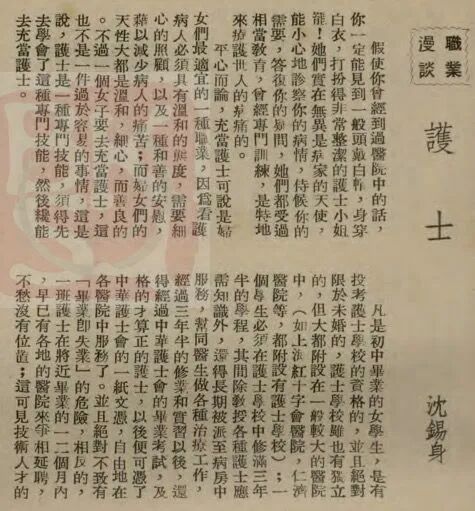 職業
漫談
護士
沈錫身
假使你曾經到過醫院中的話，
你一定能見到一般頭戴白帽，身穿
白衣，打扮得非常整潔的護士小姐
罷！她們實在無異是病家的天使，
能小心地診察你的病情，侍候你的
需要，答復你的尋問，她們都受過
相當教育，曾經專門訓練，是特地
來療護世人的病痛的。
平心而論，充當護士可說是婦
女們最適宜的一種職業，因爲看護
病人必須具有溫和的態度，需要細
心的照顧，以及一種和善的安慰，
藉以減少病人的痛苦；而婦女們的
天性大都是溫和，細心，而善良的
。不過一個女子要去充當護士，這
也不是一件過於容易的事情，這是
說，護士是一種專門技能，須得先
去學會了這種專門技能，然後纔能
去充當護士。
凡是初中畢業的女學生，是有
投考護士學校的資格的，並且絕對
限於未婚的，護士學校雖也有獨立
的，但大都附設在一般較大的醫院
中，（如上海紅十字會醫院，仁濟
醫院等，都附設有護士學校）；一
個學生必須在護士學校中修滿三年
半的學程，其間除教授各種護士應
需知識外，還得長期被派至病房中
服務，幫同醫生做各種治療工作，
經過三年半的修業和實習以後，還
得經過中華護士會的畢業考試，及
格的才算正的護士，以後便可憑了
中華護士會的一紙文憑，自由地在
各醫院中服務了。並且絕對不致有
「畢業卽失業」的危險，相反的，
一班護士在將近畢業的一二個月內
，早已有各地的醫院來爭相延聘，
不愁沒有位置；這可見技術人才的